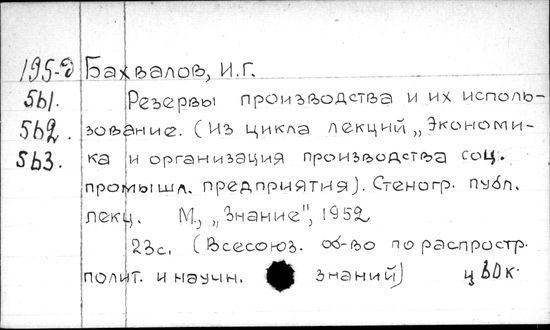 195-д Бахвалов, И.Г.
561. Резервы производства и их исполь-
562. зование. (Из цикла лекций „Экономи-
563. ка и организация производства соц.
промышл. предприятия). Стеногр. публ.
лекц. М., „Знание", 1952
23с. (Всесоюз. об-во по распростр.
полит. и научн. знаний)